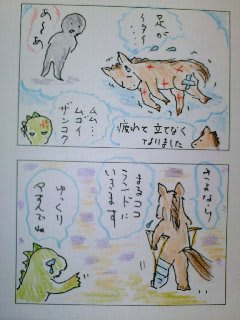 足が
イタイ…
あ〜あ
ムム…
ムゴイ
ザンコク
疲れて立てなく
なりました
さよなら。
ランドに
いきます
ゆっくり
やすんでね